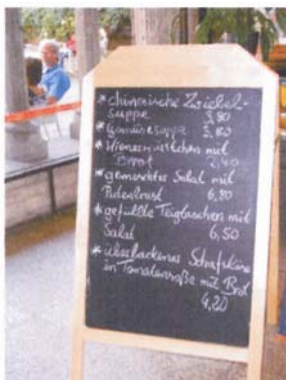 * chinesische Zwiebel-
suppe 3,80
* Gemüsesuppe 3,80
* Wienerwürstchen mit
Brot 2,40
* gemischtes Salat mit
Putenbrust 6,80
* gefüllte Teigtaschen mit
Salat 6,50
* überbackener Schafskäse
in Tomatensoße mit Brot
4,20